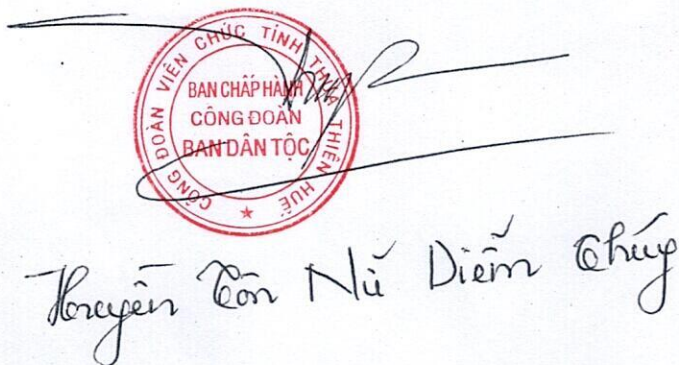 CÔNG ĐOÀN VIÊN CHỨC TỈNH THỪA THIÊN HUẾ
BAN CHẤP HÀNH
CÔNG ĐOÀN
BAN DÂN TỘC
★
Huyền Tôn Nữ Diễm Thúy